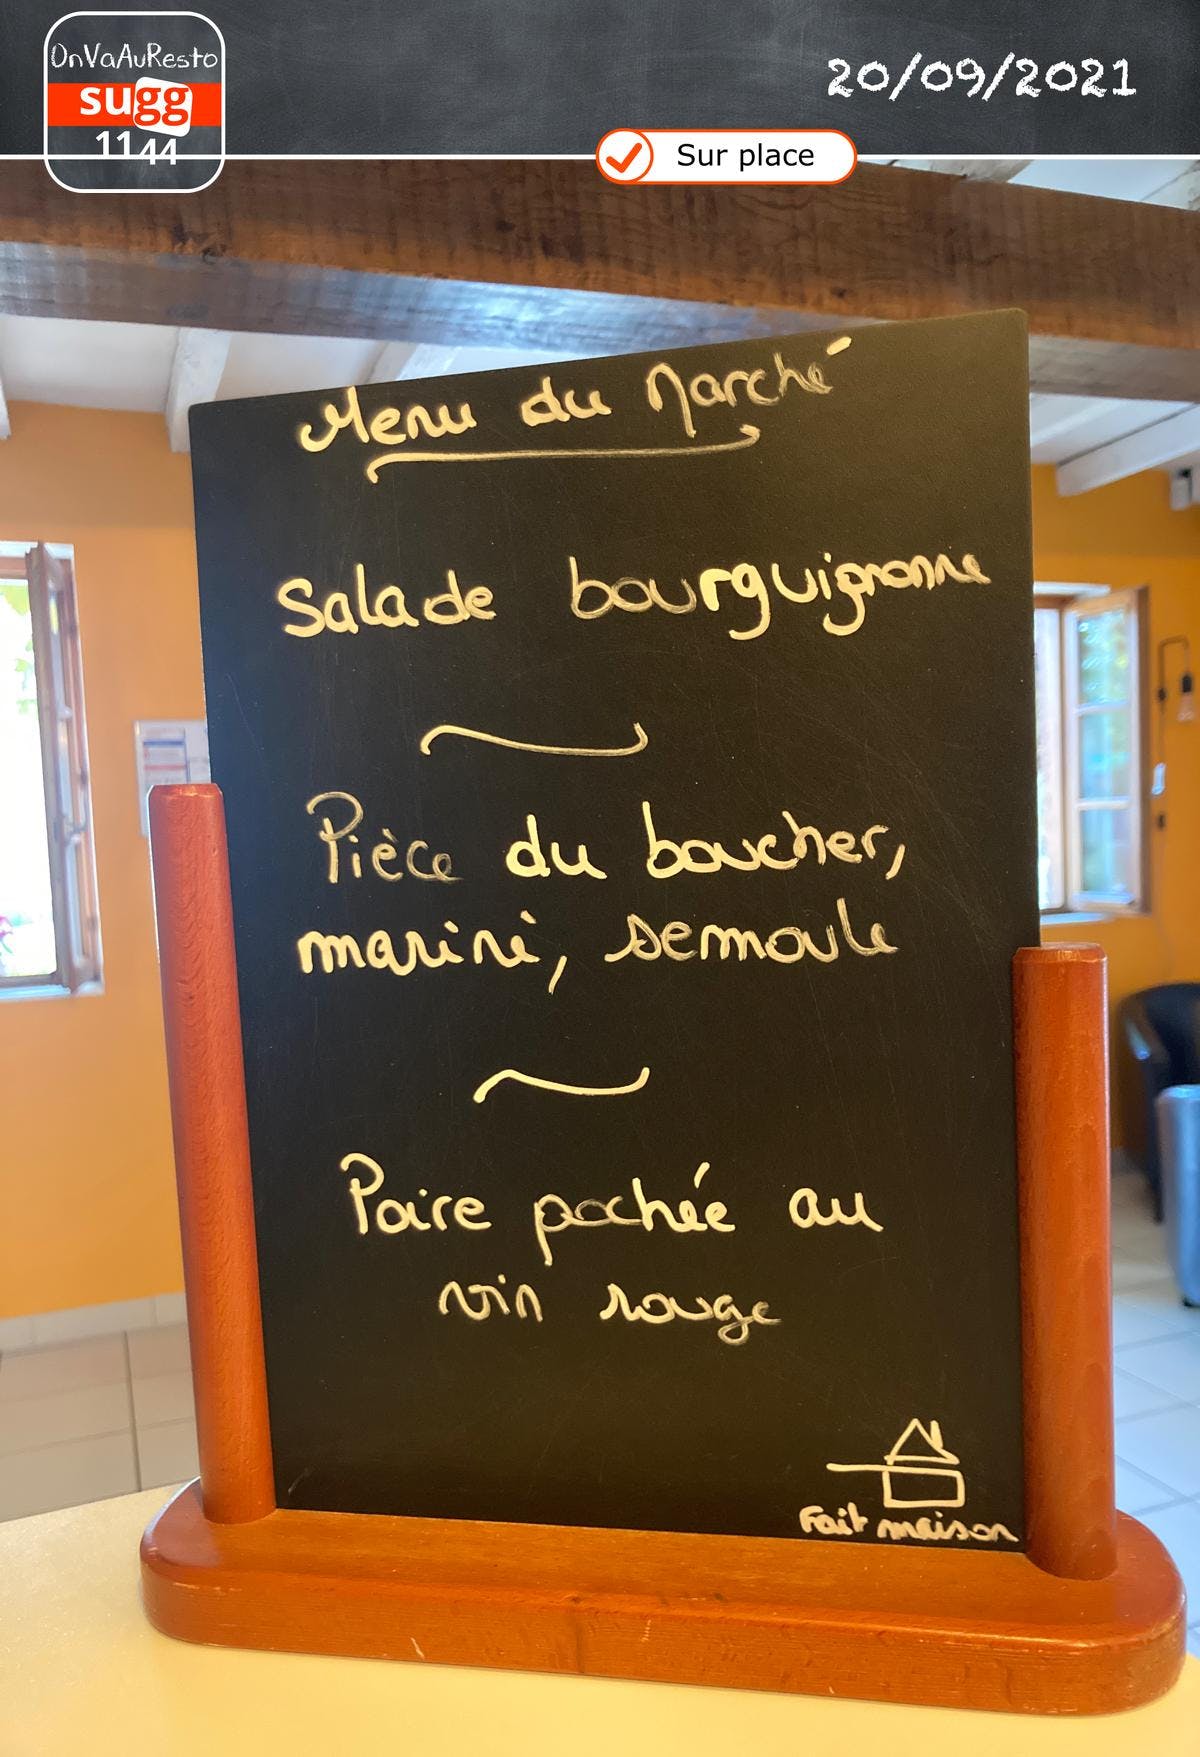 OnVaAuResto
sugg
1144
20/09/2021
Sur place
Menu du Marché
Salade bourguignonne
Pièce du boucher,
mariné, semoule
Poire pochée au
vin rouge
Fait maison